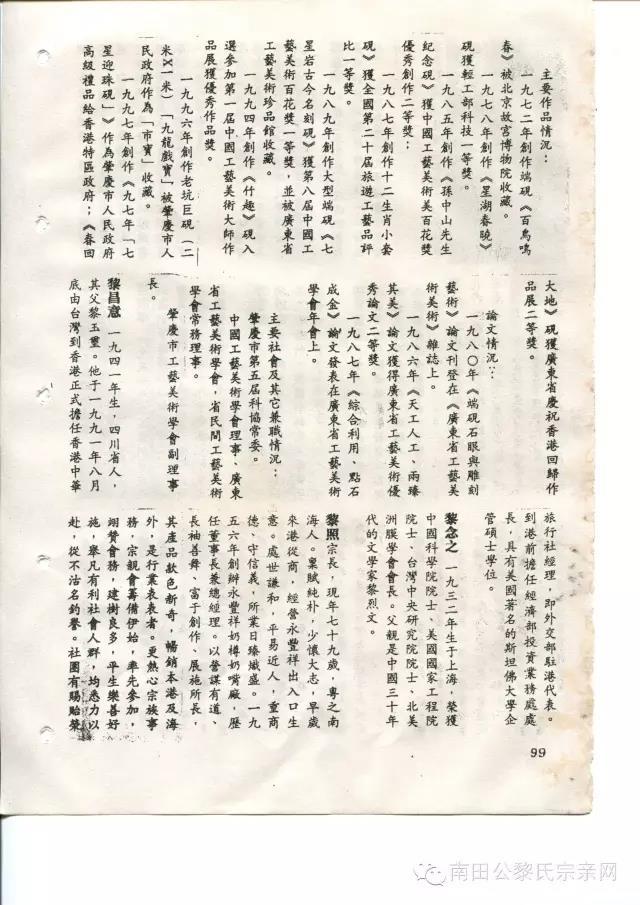 主要作品情况：
一九七二年創作端硯《百鳥鳴
春》被北京故宮博物院收藏。
一九七八年創作《星湖春曉》
硯獲輕工部科技一等獎。
一九八五年創作《孫中山先生
紀念硯》獲中國工藝美術美百花獎
優秀創作二等獎；
一九八七年創作十二生肖小套
硯》獲全國第二十屆旅遊工藝品評
比一等獎。
一九八九年創作大型端硯《七
星岩古今名刻硯》獲第八屆中國工
藝美術百花獎一等獎，並被廣東省
工藝美術珍品館收藏。
一九九四年創作《竹趣》硯入
選參加第一屆中國工藝美術大師作
品展獲優秀作品獎。
一九九六年創作老坑巨硯（二
米X一米）「九龍戲寶」被肇慶市人
民政府作為「市寶」收藏。
一九九七年創作《九七年「七
星迎珠硯」》作為肇慶市人民政府
高級禮品給香港特區政府；《春回
大地》硯獲廣東省慶祝香港回歸作
品展二等獎。
論文情況：
一九八〇年《端硯石眼與雕刻
藝術》論文刊登在《廣東省工藝美
術美術》雜誌上。
一九八六年《天工人工、兩臻
其美》論文獲得廣東省工藝美術優
秀論文二等獎。
一九八七年《綜合利用、點石
成金》論文發表在廣東省工藝美術
學會年會上。
主要社會及其它兼職情況：
肇慶市第五屆科協常委。
中國工藝美術學會理事、廣東
省工藝美術學會，省民間工藝美術
學會常務理事。
肇慶市工藝美術學會副理事
長。
黎昌意 一九四一年生，四川省人，
其父黎玉璽。他于一九九一年八月
底由台灣到香港正式擔任香港中華
旅行社經理，即外交部駐港代表。
到港前擔任經濟部投資業務處處
長，具有美國著名的斯坦佛大學企
管碩士學位。
黎念之 一九三二年生于上海，榮獲
中國科學院院士、美國國家工程院
院士、台灣中央研究院院士、北美
洲膜學會會長。父親是中國三十年
代的文學家黎烈文。
黎照宗長，現年七十九歲，粵之南
海人。稟賦純朴，少懷大志，早歲
來港從商，經營永豐祥出入口生
意。處世謙和，平易近人，重商
德、守信義，所業日臻熾盛。一九
五六年創辦永豐祥奶樽奶嘴廠，歷
任董事長兼總經理。以營謀有道、
長袖善舞、富于創作、展施所長，
其產品款色新奇，暢銷本港及海
外，是行業表表者。更熱心宗族事
務，宗親會籌備伊始，率先參加，
翊贊會務，建樹良多，平生樂善好
施，舉凡有利社會人群，均悉力以
赴，從不沽名釣譽。社團有賜貽榮
99
南田公黎氏宗亲网